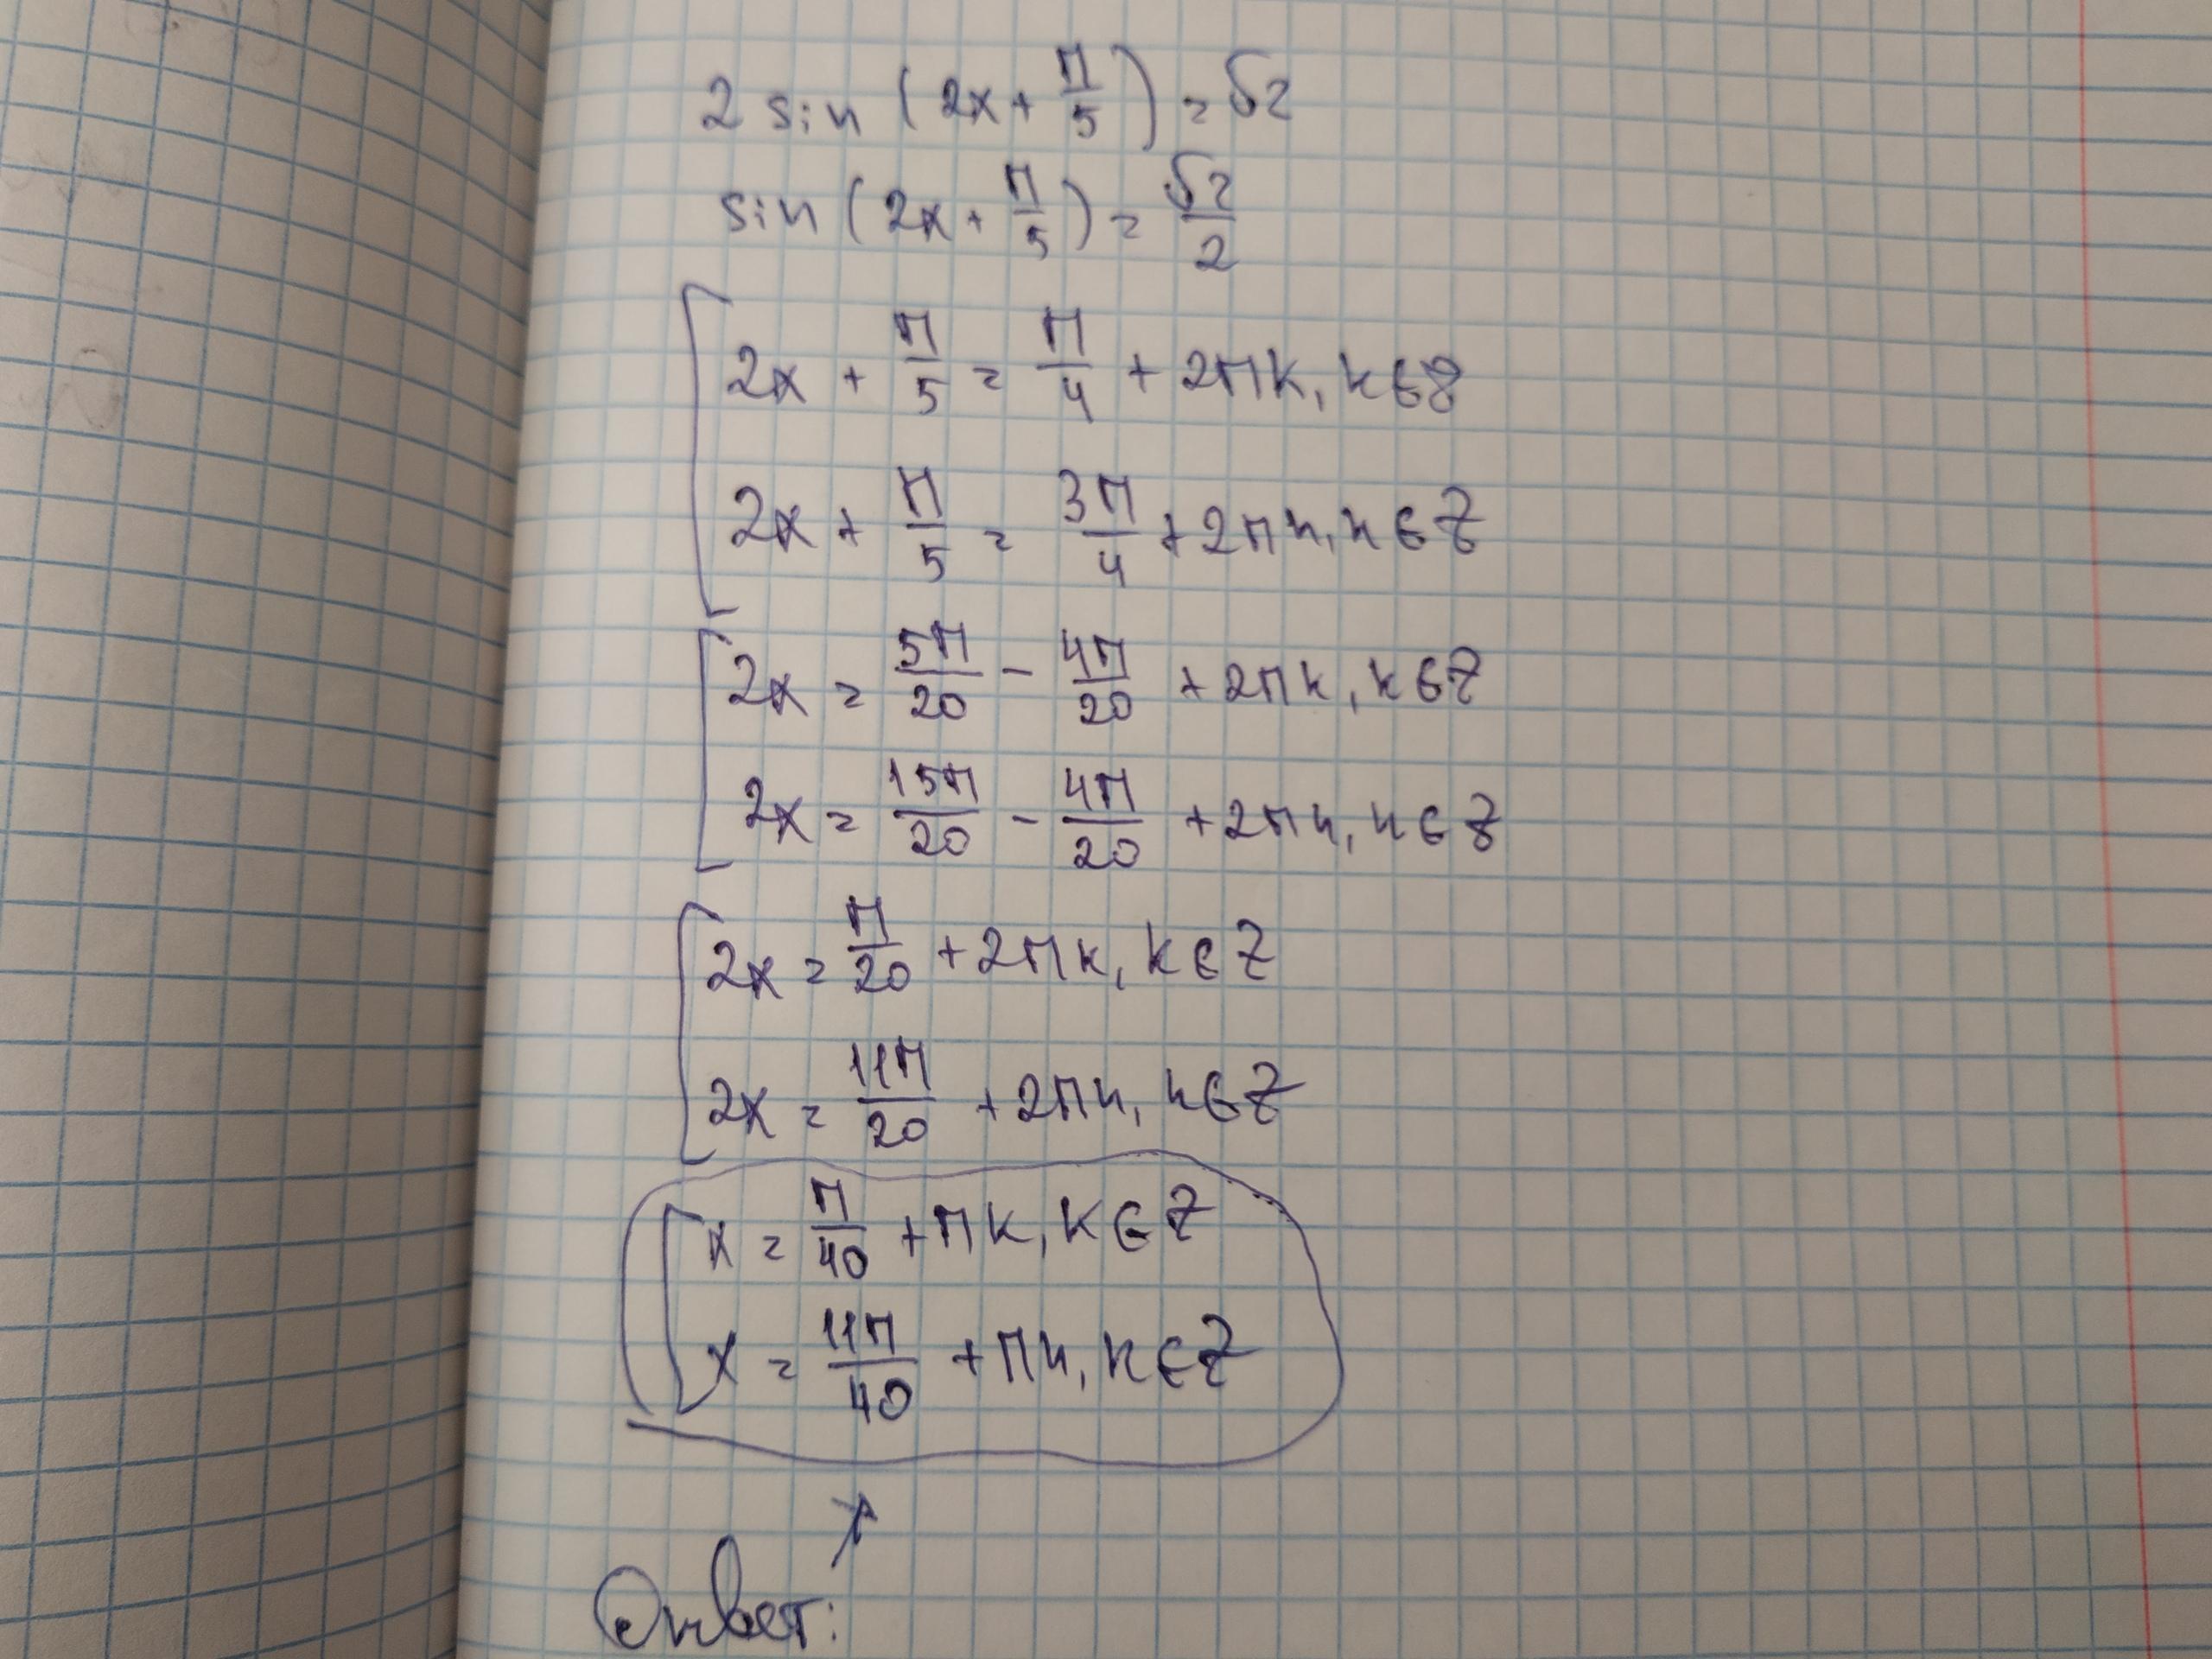 2 sin (2x + π/5) = √2
sin (2x + π/5) = √2/2
[ 2x + π/5 = π/4 + 2πk, k ∈ Z
2x + π/5 = 3π/4 + 2πn, n ∈ Z
[ 2x = 5π/20 - 4π/20 + 2πk, k ∈ Z
2x = 15π/20 - 4π/20 + 2πn, n ∈ Z
[ 2x = π/20 + 2πk, k ∈ Z
2x = 11π/20 + 2πn, n ∈ Z
[ x = π/40 + πk, k ∈ Z
x = 11π/40 + πn, n ∈ Z
Ответ: